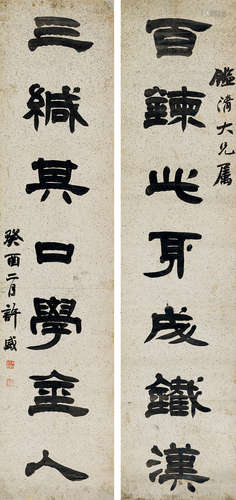 鑑清大兄属
百鍊此身成鐵漢
三緘其口學金人
癸酉二月許威